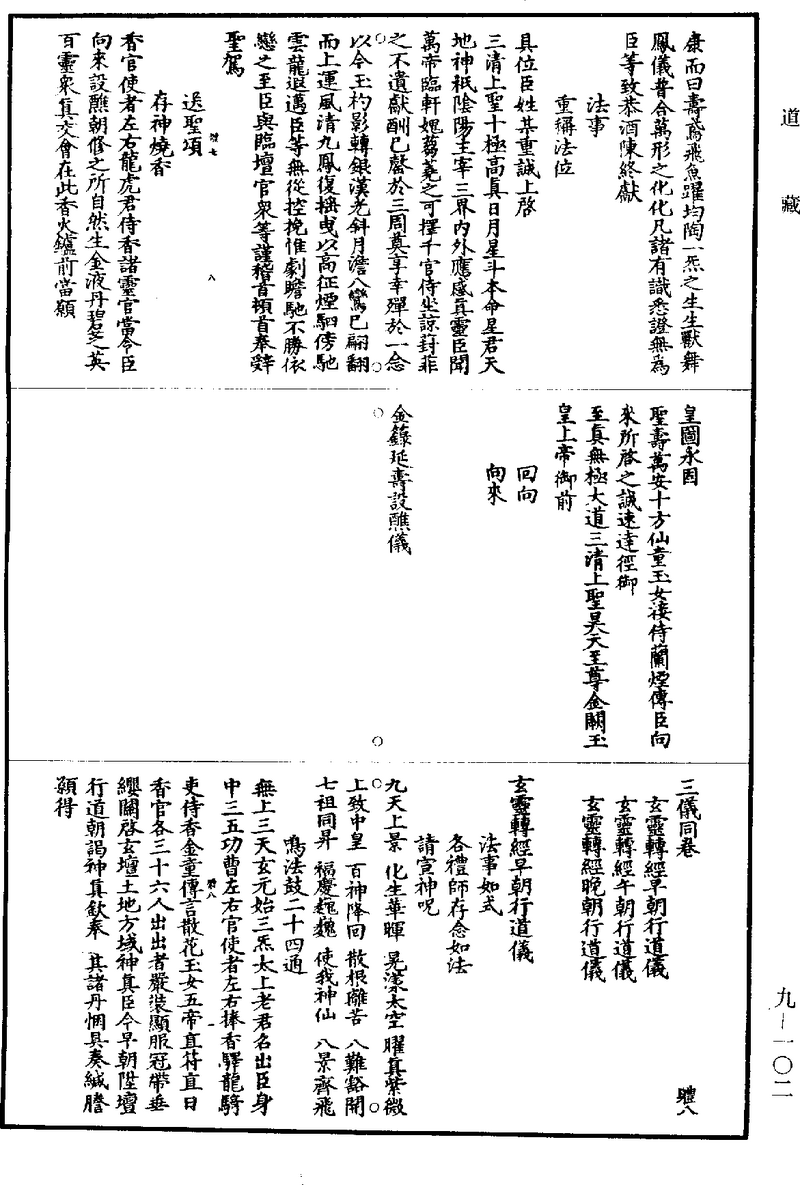 道藏
康而曰壽鳶飛魚躍均陶一炁之生生獸舞
鳳儀普合萬形之化化凡諸有識悉證無為
臣等致恭酒陳終獻
法事
重稱法位
具位臣姓某重誠上啓
三清上聖十極高真日月星斗本命星君天
地神祇陰陽主宰三界內外應感真靈臣聞
萬帝臨軒媿蒭蕘之可擇千官侍坐諒葑菲
之不遺獻酬已罄於三周莫享幸殫於一念
以今玉杓影轉銀漢光斜月澹八鸞已翩翻
而上運風清九鳳復搖曳以高征煙駟傍馳
雲龍遐邁臣等無從控挽惟劇瞻馳不勝依
戀之至臣與臨壇官衆等謹稽首頓首奉辝
聖駕
送聖頌
存神燒香
香官使者左右龍虎君侍香諸靈官當令臣
向來設醮朝修之所自然生金液丹碧芝英
百靈衆真交會在此香火鑪前當願
皇圖永固
聖壽萬安十方仙童玉女接侍蘭煙傳臣向
來所啓之誠速達徑御
至真無極大道三清上聖昊天至尊金闕玉
皇上帝御前
回向
向來
金籙延壽設醮儀
三儀同卷
體八
玄靈轉經早朝行道儀
玄靈轉經午朝行道儀
玄靈轉經晚朝行道儀
玄靈轉經早朝行道儀
法事如式
各禮師存念如法
請宣神呪
九天上景 化生華暉 晃漾太空 曜真紫微
上致中皇 百神降回 散根離苦 八難豁開
七祖同昇 福慶巍巍 使我神仙 八景齊飛
鳴法鼓二十四通
無上三天玄元始三炁太上老君名出臣身
中三五功曹左右官使者左右捧香驛龍騎
吏侍香金童傳言散花玉女五帝直符直日
香官各三十六人出出者嚴裝顯服冠帶垂
纓關啓玄壇土地方域神真臣今早朝陞壇
行道朝謁神真欽奉 其諸丹悃具奏緘謄
願得
九－一〇二